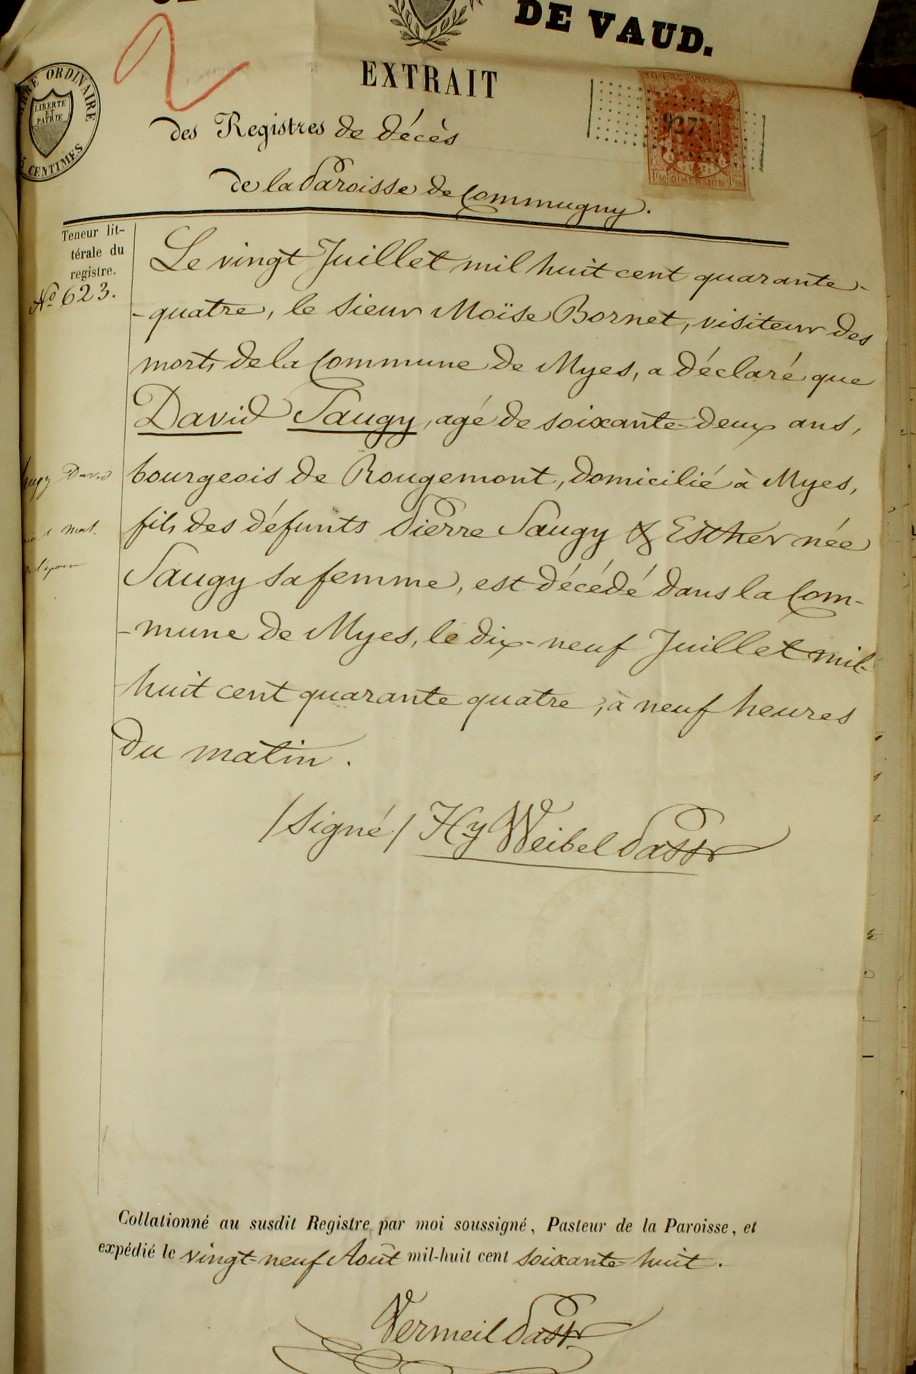 DE VAUD.
EXTRAIT
ORDINAIRE
LIBERTE
ET
PATRIE
CENTIMES
2
des Registres de décès
de la Paroisse de Commugny.
Teneur lit-
térale du
registre.
No 623.
Le vingt Juillet mil huit cent quarante-
-quatre, le sieur Moïse Bornet, visiteur des
morts de la Commune de Myes, a déclaré que
David Saugy, agé de soixante-deux ans,
bourgeois de Rougemont, domicilié à Myes,
fils des défunts Pierre Saugy & Esther née
Saugy sa femme, est décédé dans la Com-
-mune de Myes, le dix-neuf Juillet mil-
huit cent quarante quatre, à neuf heures
du matin.
David
/Signé/ Hy Weibel Pastr
Collationné au susdit Registre par moi soussigné, Pasteur de la Paroisse, et
expédié le vingt-neuf Août mil-huit cent soixante-huit.
Vermeil Pastr